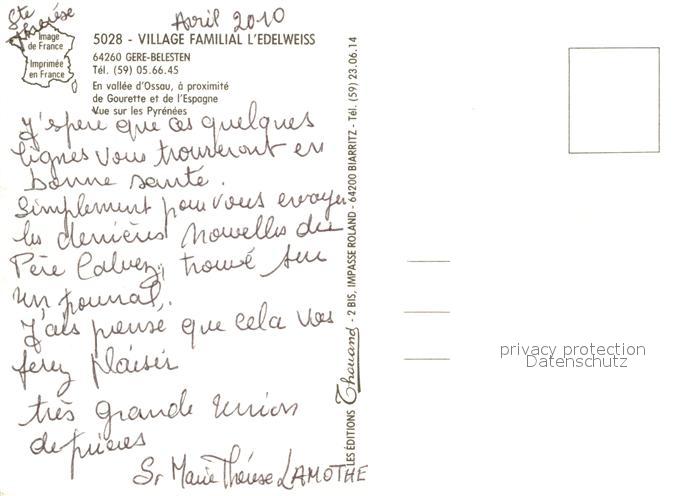 Ste
Thérèse
Avril 2010
Image
de France
Imprimée
en France
5028 - VILLAGE FAMILIAL L'EDELWEISS
64260 GERE-BELESTEN
Tél. (59) 05.66.45
En vallée d'Ossau, à proximité
de Gourette et de l'Espagne
Vue sur les Pyrénées
J'spere que ces quelques
lignes vous trouveront en
bonne santé.
Simplement pour vous envoyer
les dernières nouvelles du
Père Calvez, trouvé sur
un journal.
J'ais pensé que cela vous
ferez plaisir
très grande union
de prières
Sr Marie Thérèse LAMOTHE
LES ÉDITIONS Thouand - 2 BIS, IMPASSE ROLAND - 64200 BIARRITZ - Tél. (59) 23.06.14
privacy protection
Datenschutz